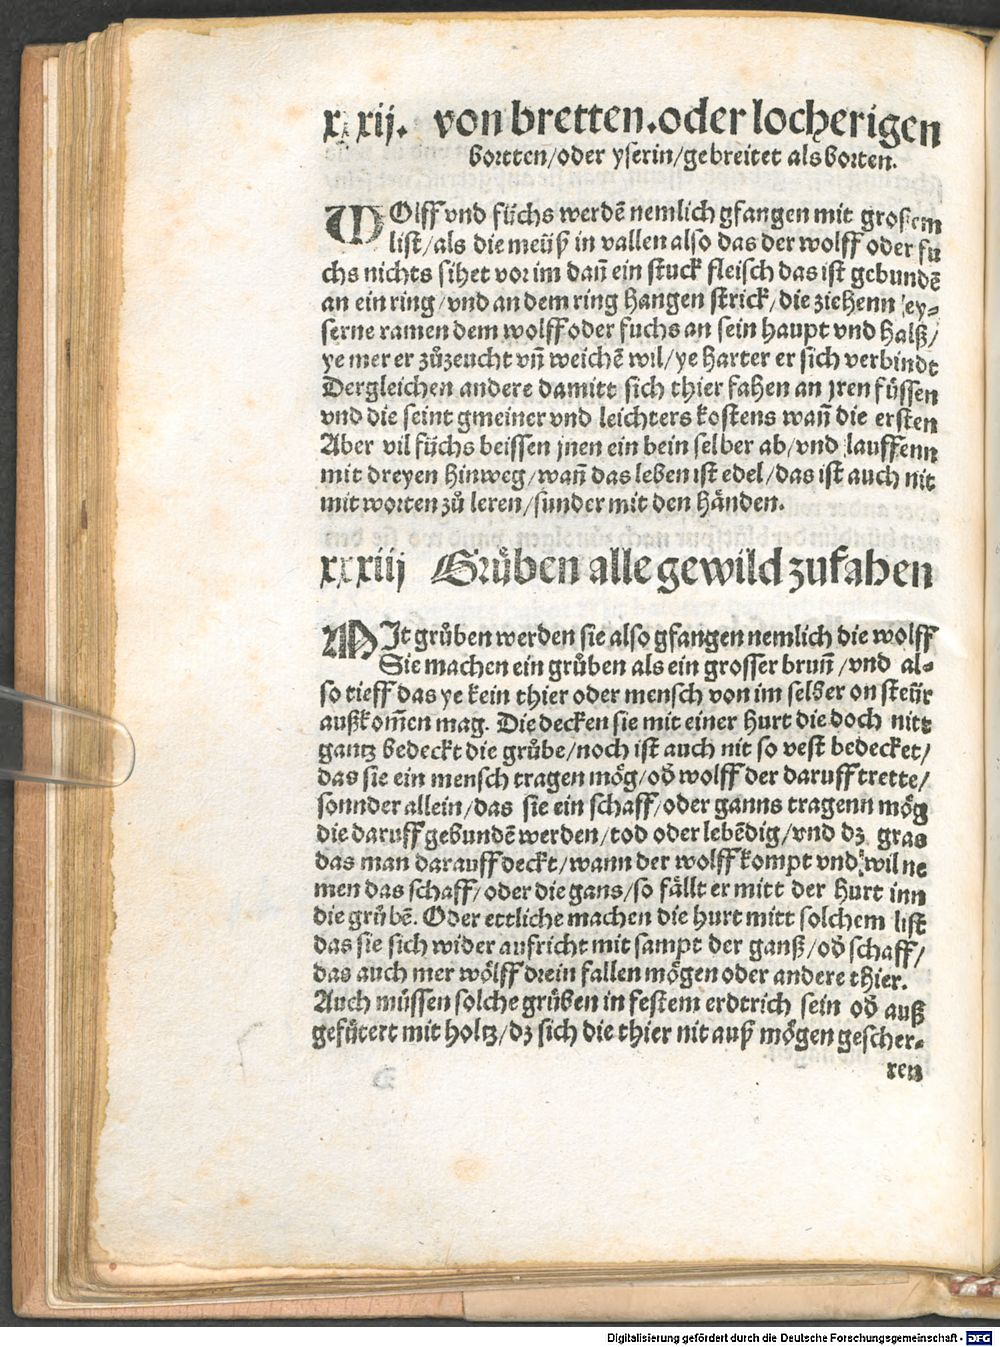 xxxij. von bretten.oder locherigen
bortten/oder yserin/gebreitet als borten.
WOlff vnd füchs werdē nemlich gfangen mit grossem
list/als die meüß in vallen also das der wolff oder fu
chs nichts sihet vor im dañ ein stuck fleisch das ist gebundē
an ein ring/vnd an dem ring hangen strick/die ziehenn ey⸗
serne ramen dem wolff oder fuchs an sein haupt vnd halß/
ye mer er zůzeucht vñ weichē wil/ye harter er sich verbindt
Dergleichen andere damitt sich thier fahen an jren füssen
vnd die seint gmeiner vnd leichters kostens wañ die ersten
Aber vil füchs beissen jnen ein bein selber ab/vnd lauffenn
mit dreyen hinweg/wañ das leben ist edel/das ist auch nit
mit worten zů leren/sunder mit den händen.
xxxiij Grůben alle gewild zufahen
MIt grůben werden sie also gfangen nemlich die wolff
Sie machen ein grůben als ein grosser bruñ/vnd al⸗
so tieff das ye kein thier oder mensch von im selber on steür
außkom̄en mag. Die decken sie mit einer hurt die doch nitt
gantz bedeckt die grůbe/noch ist auch nit so vest bedecket/
das sie ein mensch tragen mög/od̕ wolff der daruff trette/
sonnder allein/das sie ein schaff/oder ganns tragenn mög
die daruff gebundē werden/tod oder lebēdig/vnd dz gras
das man darauff deckt/wann der wolff kompt vnd wil ne
men das schaff/oder die gans/so fällt er mitt der hurt inn
die grůbē. Oder ettliche machen die hurt mitt solchem list
das sie sich wider aufricht mit sampt der ganß/od̕ schaff/
das auch mer wölff drein fallen mögen oder andere thier.
Auch müssen solche grůben in festem erdtrich sein od̕ auß
gefůtert mit holtz/dz sich die thier nit auß mögen gescher⸗
ren
Digitalisierung gefördert durch die Deutsche Forschungsgemeinschaft - DFG